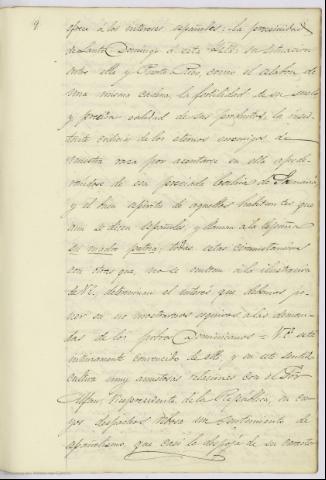 9
ofrece á los intereses españoles: la proximidad
de Santo Domingo á esta Isla: su situacion
entre ella y Puerto Rico como el eslabon de
una misma cadena, la fertilidad de su suelo
y preciosa calidad de sus productos, la insi-
diosa codicia de los eternos enemigos de
nuestra raza por asentarse en ella apode-
rándose de su preciada bahia de Samaná,
y el buen espíritu de aquellos habitantes que
aun se dicen Españoles, y llaman á la España
su madre patria; todas estas circunstancias
con otras que no se ocultan á la ilustracion
de V.E. determinan el interés que debemos po-
ner en no mostrarnos esquivos á las deman-
das de los pobres Dominicanos = V.E. está
íntimamente convencido de ello, y en este sentido
cultiva muy amistosas relaciones con el Gral
Alfau, Vicepresidente de la República, en cu-
yos despachos rebosa un sentimiento de
españolismo, que casi le despoja de su carácter